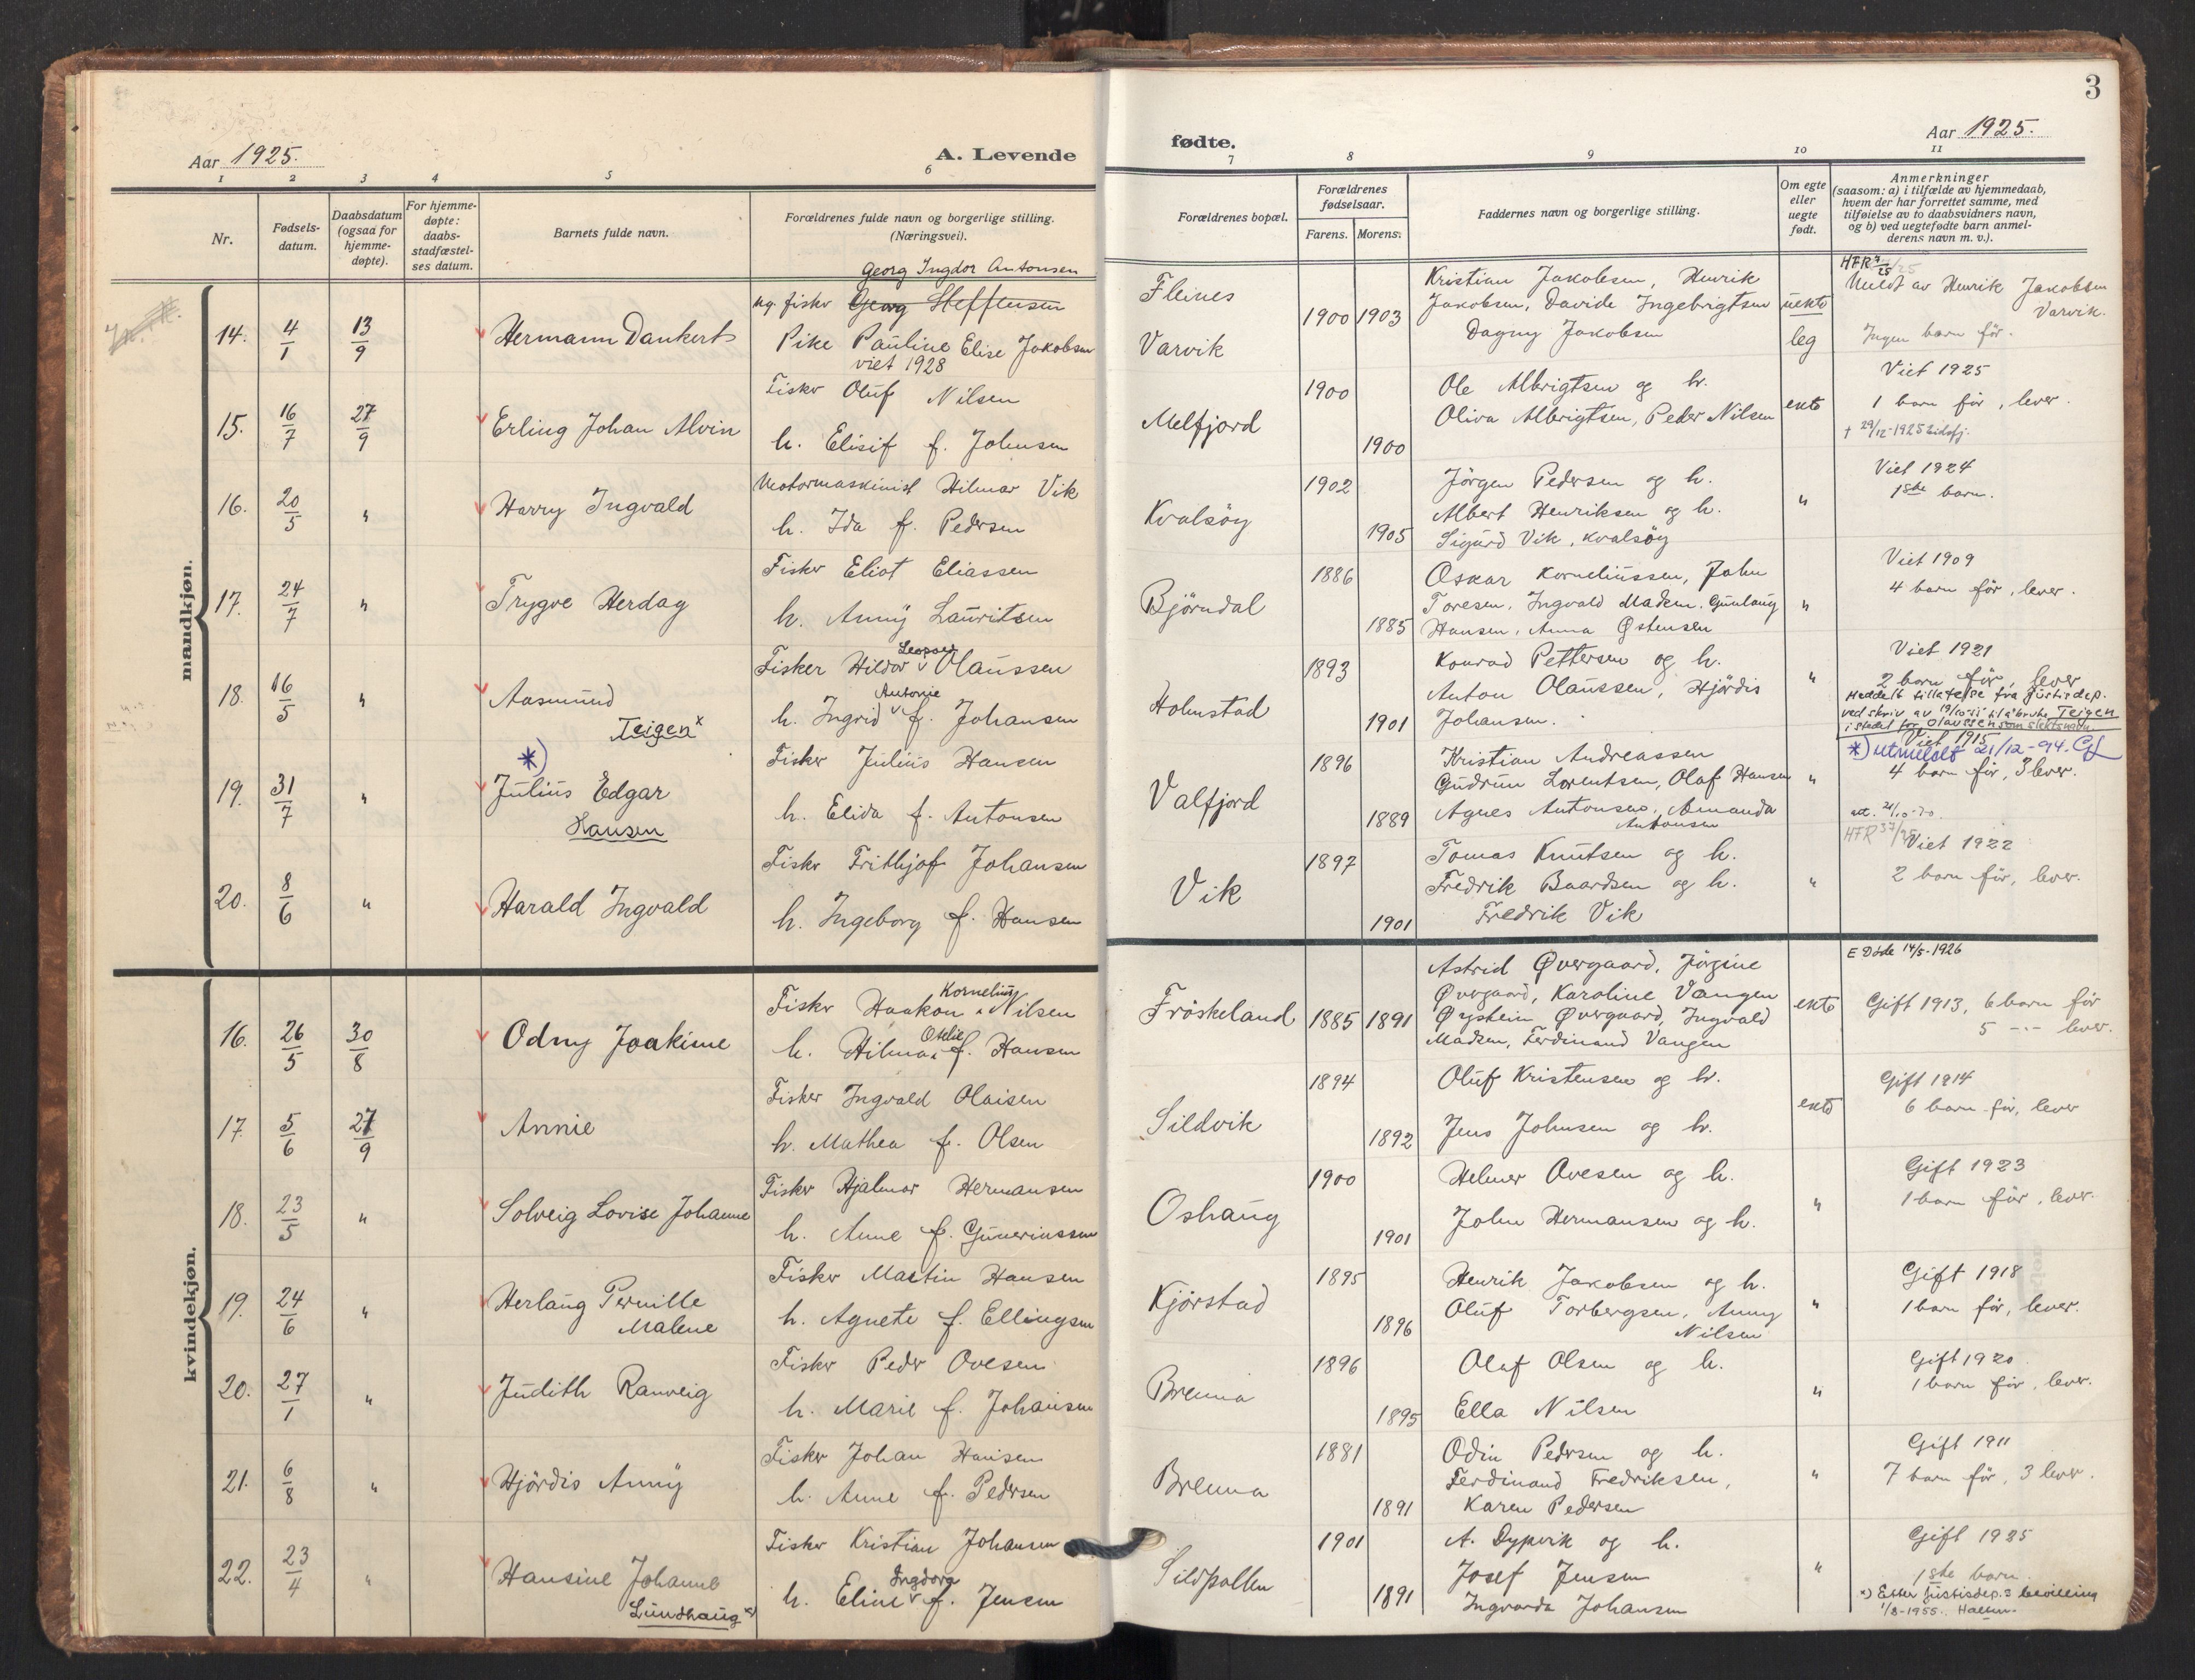 3
Aar 1925.
A. Levende
fødte.
Aar 1925.
1 2 3 4 5 6
7 8 9 10 11
Nr.
Fødsels-
datum.
Daabsdatum
(ogsaa for
hjemme-
døpte).
For hjemme-
døpte:
daabs-
stadfæstel-
ses datum.
Barnets fulde navn.
Forældrenes fulde navn og borgerlige stilling.
(Næringsvei).
Forældrenes bopæl.
Forældrenes
fødselsaar.
Farens. Morens.
Faddernes navn og borgerlige stilling.
Om egte
eller
uegte
født.
Anmerkninger
(saasom: a) i tilfælde av hjemmedaab,
hvem der har forrettet samme, med
tilføielse av to daabsvidners navn,
og b) ved uegtefødte barn anmel-
derens navn m. v.).
mandkjøn.
Georg Ingdor Antonsen
14. 4/1 13/9 Hermann Dankert
ug. fisker Georg Steffensen
Pike Pauline Elise Jakobsen
viet 1928
Fleines
Varvik
1900 1903
Kristian Jakobsen, Henrik
Jakobsen, Davide Ingebrigtsen
Dagny Jakobsen
uekte
leg
HFR
Meldt av Henrik Jakobsen
Varvik.
Ingen barn før.
15. 16/7 27/9 Erling Johan Alvin
Fisker Oluf Nilsen
h. Elisif f. Johnsen
Melfjord
1900
1900
Ole Albrigtsen og h.
Oliva Albrigtsen, Peder Nilsen
ekte
Viet 1925
1 barn før, lever.
† 29/12-1925
16. 20/5 " Harry Ingvald
Motormaskinist Hilmar Vik
h. Ida f. Pedersen
Kvalsøy
1902
1905
Jörgen Pedersen og h.
Albert Henriksen og h.
Sigurd Vik, Kvalsøy
"
Viet 1924
1ste barn.
17. 24/7 " Trygve Herdag
Fisker Eliot Eliassen
h. Anny Lauritsen
Björndal
1886
1885
Oskar Korneliussen, John
Toresen, Ingvald Madsen, Gunlaug
Hansen, Anna Østensen
"
Viet 1909
4 barn før, lever.
18. 16/5 " Aasmund
Teigen x
Fisker Hildor Leopold Olaussen
h. Ingrid Antonie f. Johansen
Holmstad
1893
1901
Konrad Pettersen og h.
Anton Olaussen, Hjördis
Johansen.
"
Viet 1921
2 barn før, lever
Meddelt tillatelse fra Justisdep.
ved skriv av til å bruke Teigen
i stedet for Olaussen som slektsnavn
19. 31/7 " *) Julius Edgar
Hansen
Fisker Julius Hansen
h. Elida f. Antonsen
Valfjord
1896
1889
Kristian Andreassen
Gudrun Lorentsen, Olaf Hansen
Agnes Antonsen, Amanda
Antonsen
"
Viet 1915
*) utmeldt 21/12-94. GL
4 barn før, 3 lever.
20. 8/6 " Harald Ingvald
Fisker Frithjof Johansen
h. Ingeborg f. Hansen
Vik
1897
1901
Tomas Knutsen og h.
Fredrik Baardsen og h.
Fredrik Vik
"
HFR 37/25 Viet 1922
2 barn før, lever.
kvindekjøn.
16. 26/5 30/8 Odny Joakime
Fisker Haakon Kornelius Nilsen
h. Hilma Otelie f. Hansen
Fröskeland
1885 1891
Astrid Øvergaard, Jörgine
Øvergaard, Karoline Vangen
Øystein Øvergaard, Ingvald
Madsen, Ferdinand Vangen
ekte
E Døde 14/5-1926
Gift 1913, 6 barn før
5 -"- lever.
17. 5/6 27/9 Annie
Fisker Ingvald Olaisen
h. Mathea f. Olsen
Sildvik
1894
1892
Oluf Kristensen og h.
Jens Johnsen og h.
ekte
Gift 1914
6 barn før, lever
18. 23/5 " Solveig Lovise Johanne
Fisker Hjalmar Hermansen
h. Anne f. Guneriussen
Oshaug
1900
1901
Helmer Ovesen og h.
John Hermansen og h.
"
Gift 1923
1 barn før, lever.
19. 24/6 " Herlaug Pernille
Malene
Fisker Martin Hansen
h. Agnete f. Ellingsen
Kjörstad
1895
1896
Henrik Jakobsen og h.
Oluf Torbergsen, Anny
Nilsen
"
Gift 1918
1 barn før, lever.
20. 27/1 " Judith Ranveig
Fisker Peder Ovesen
h. Marie f. Johansen
Brenna
1896
1895
Olaf Olsen og h.
Ella Nilsen
"
Gift 1920
1 barn før, lever.
21. 6/8 " Hjördis Anny
Fisker Johan Hansen
h. Anne f. Pedersen
Brenna
1881
1891
Odin Pedersen og h.
Ferdinand Fredriksen,
Karen Pedersen
"
Gift 1911
7 barn før, 3 lever.
22. 23/4 " Hansine Johanne
Lundhaug x)
Fisker Kristian Johansen
h. Eline Ingdora f. Jensen
Sildpollen
1901
1891
A. Dypvik og h.
Josef Jensen
Ingvarda Johansen
"
Gift 1925
1ste barn.
x) Etter Justisdep.s bevilling
1/8-1955.